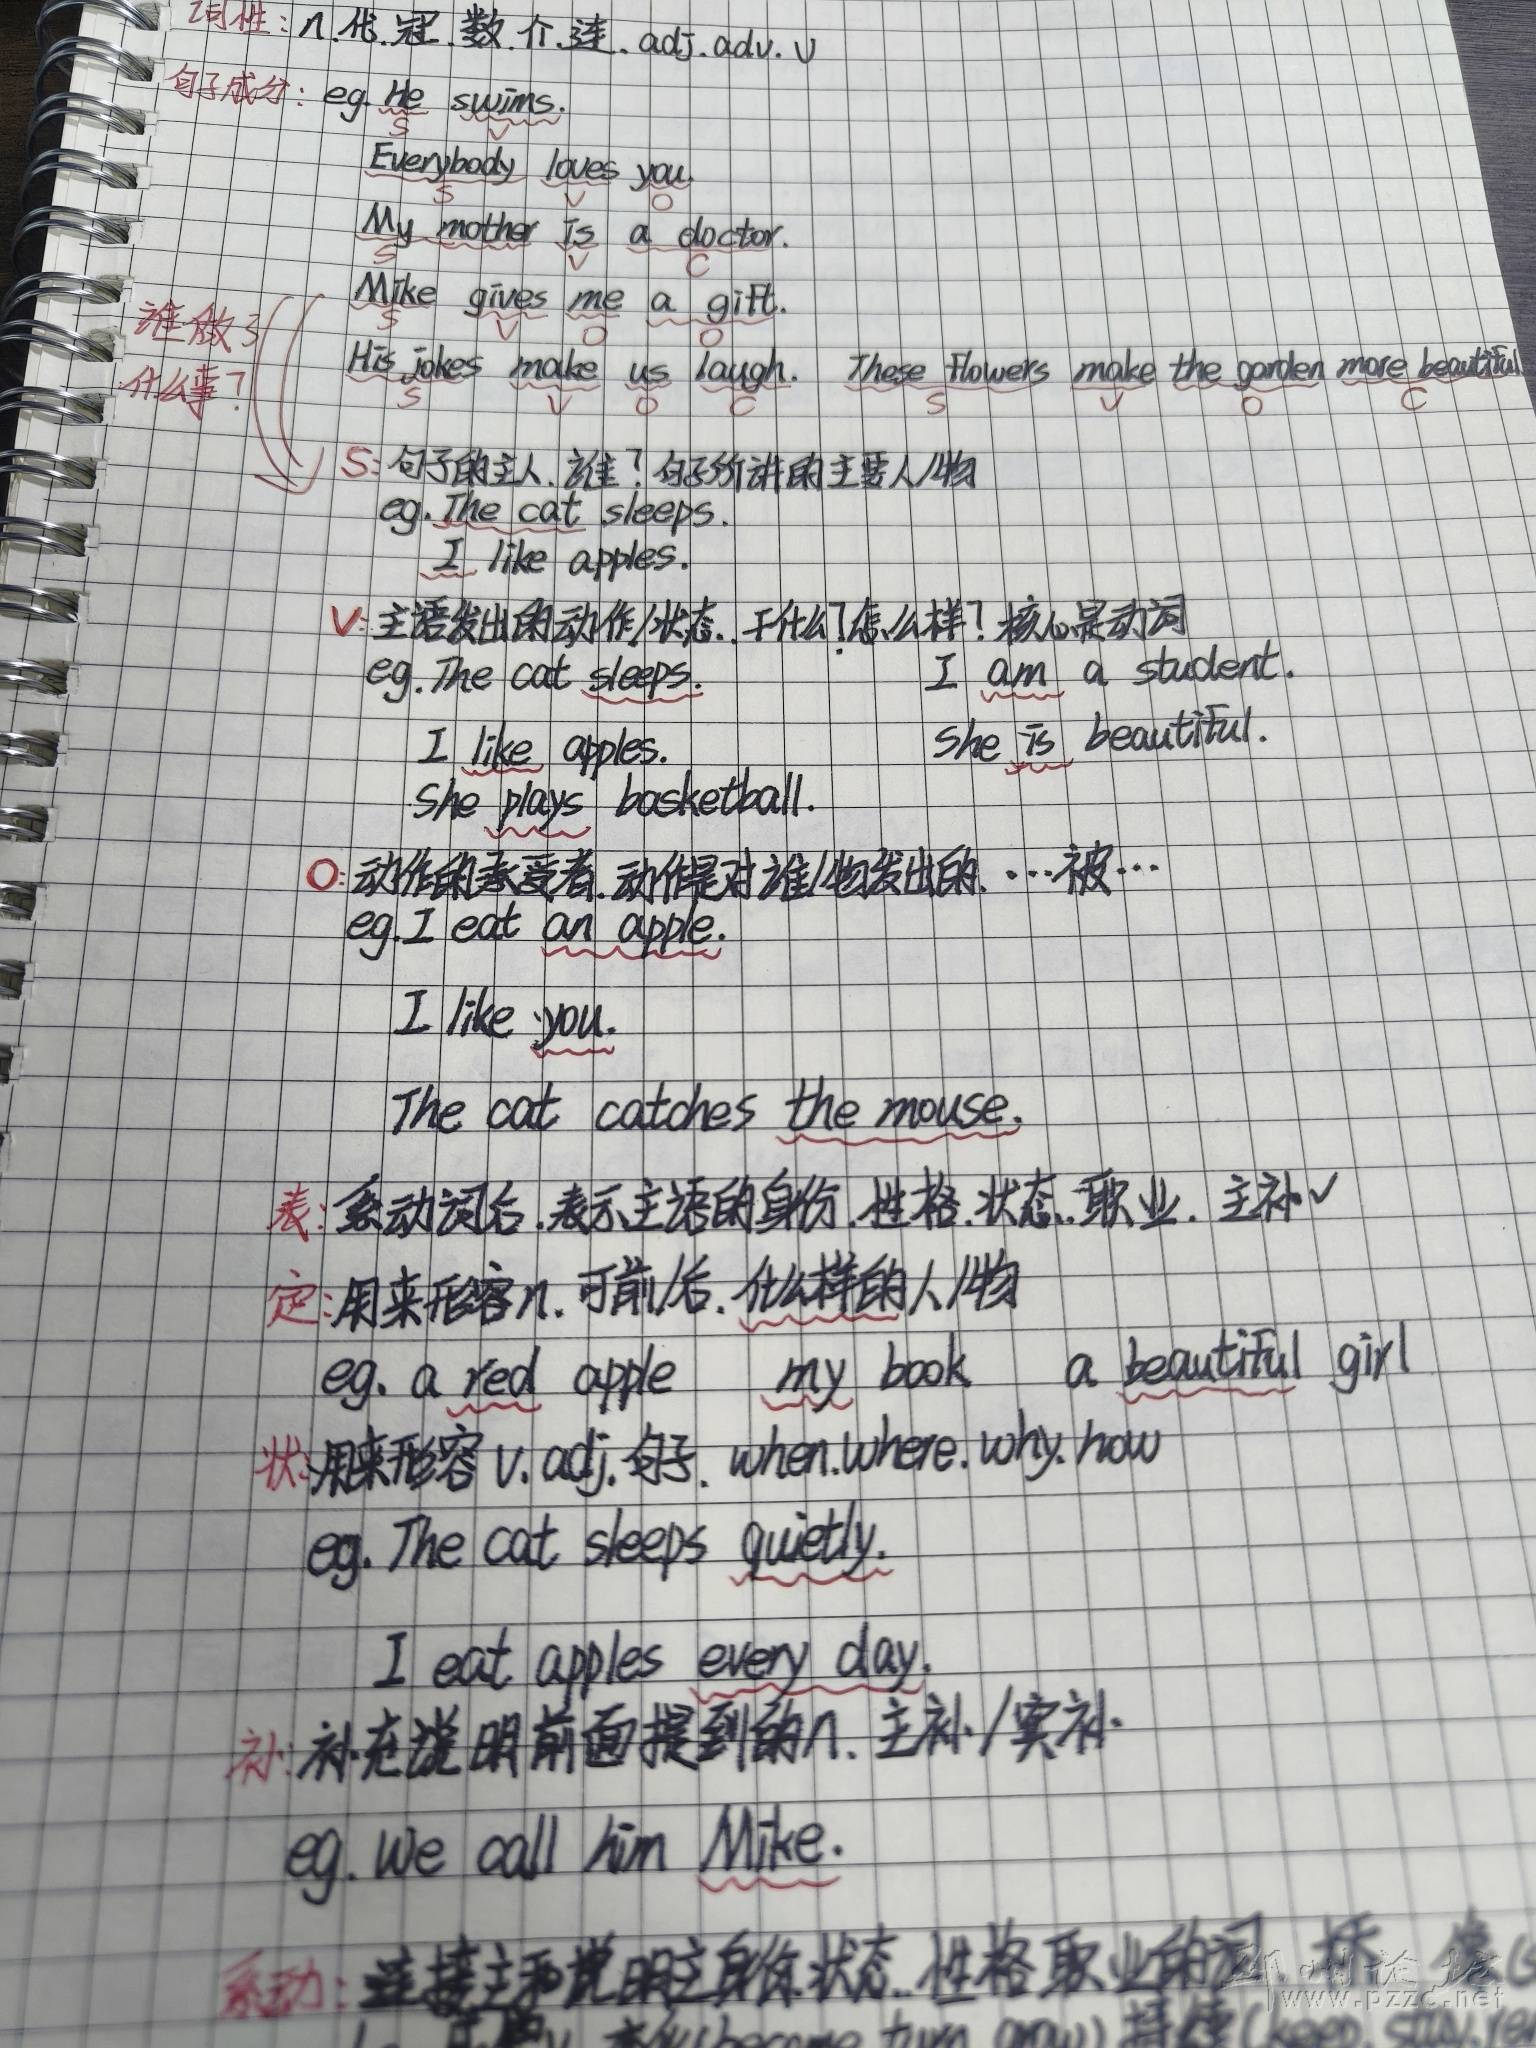 词性: n.代.冠.数.介.连.adj.adv.v
句子成分: eg. He swims.
S V
Everybody loves you.
S V O
My mother is a doctor.
S V C
Mike gives me a gift.
S V O O
谁做了
什么事?
His jokes make us laugh. These flowers make the garden more beautiful
S V O C S V O C
S: 句子的主人.谁?句子所讲的主要人/物
eg. The cat sleeps.
I like apples.
V: 主语发出的动作/状态.干什么?怎么样?核心是动词
eg. The cat sleeps. I am a student.
I like apples. She is beautiful.
She plays basketball.
O: 动作的承受者.动作是对谁/物发出的.…被…
eg. I eat an apple.
I like you.
The cat catches the mouse.
表: 系动词后.表示主语的身份.性格.状态.职业.主补✓
定: 用来形容n.可前/后.什么样的人/物
eg. a red apple my book a beautiful girl
状: 用来形容v.adj.句子.when.where.why.how
eg. The cat sleeps quietly.
I eat apples every day.
补: 补充说明前面提到的n.主补/宾补
eg. We call him Mike.
系动: 连接主和说明主身份.状态.性格职业的词 像
变化(become turn grow) 持续(keep. stay.
www.pzzc.net